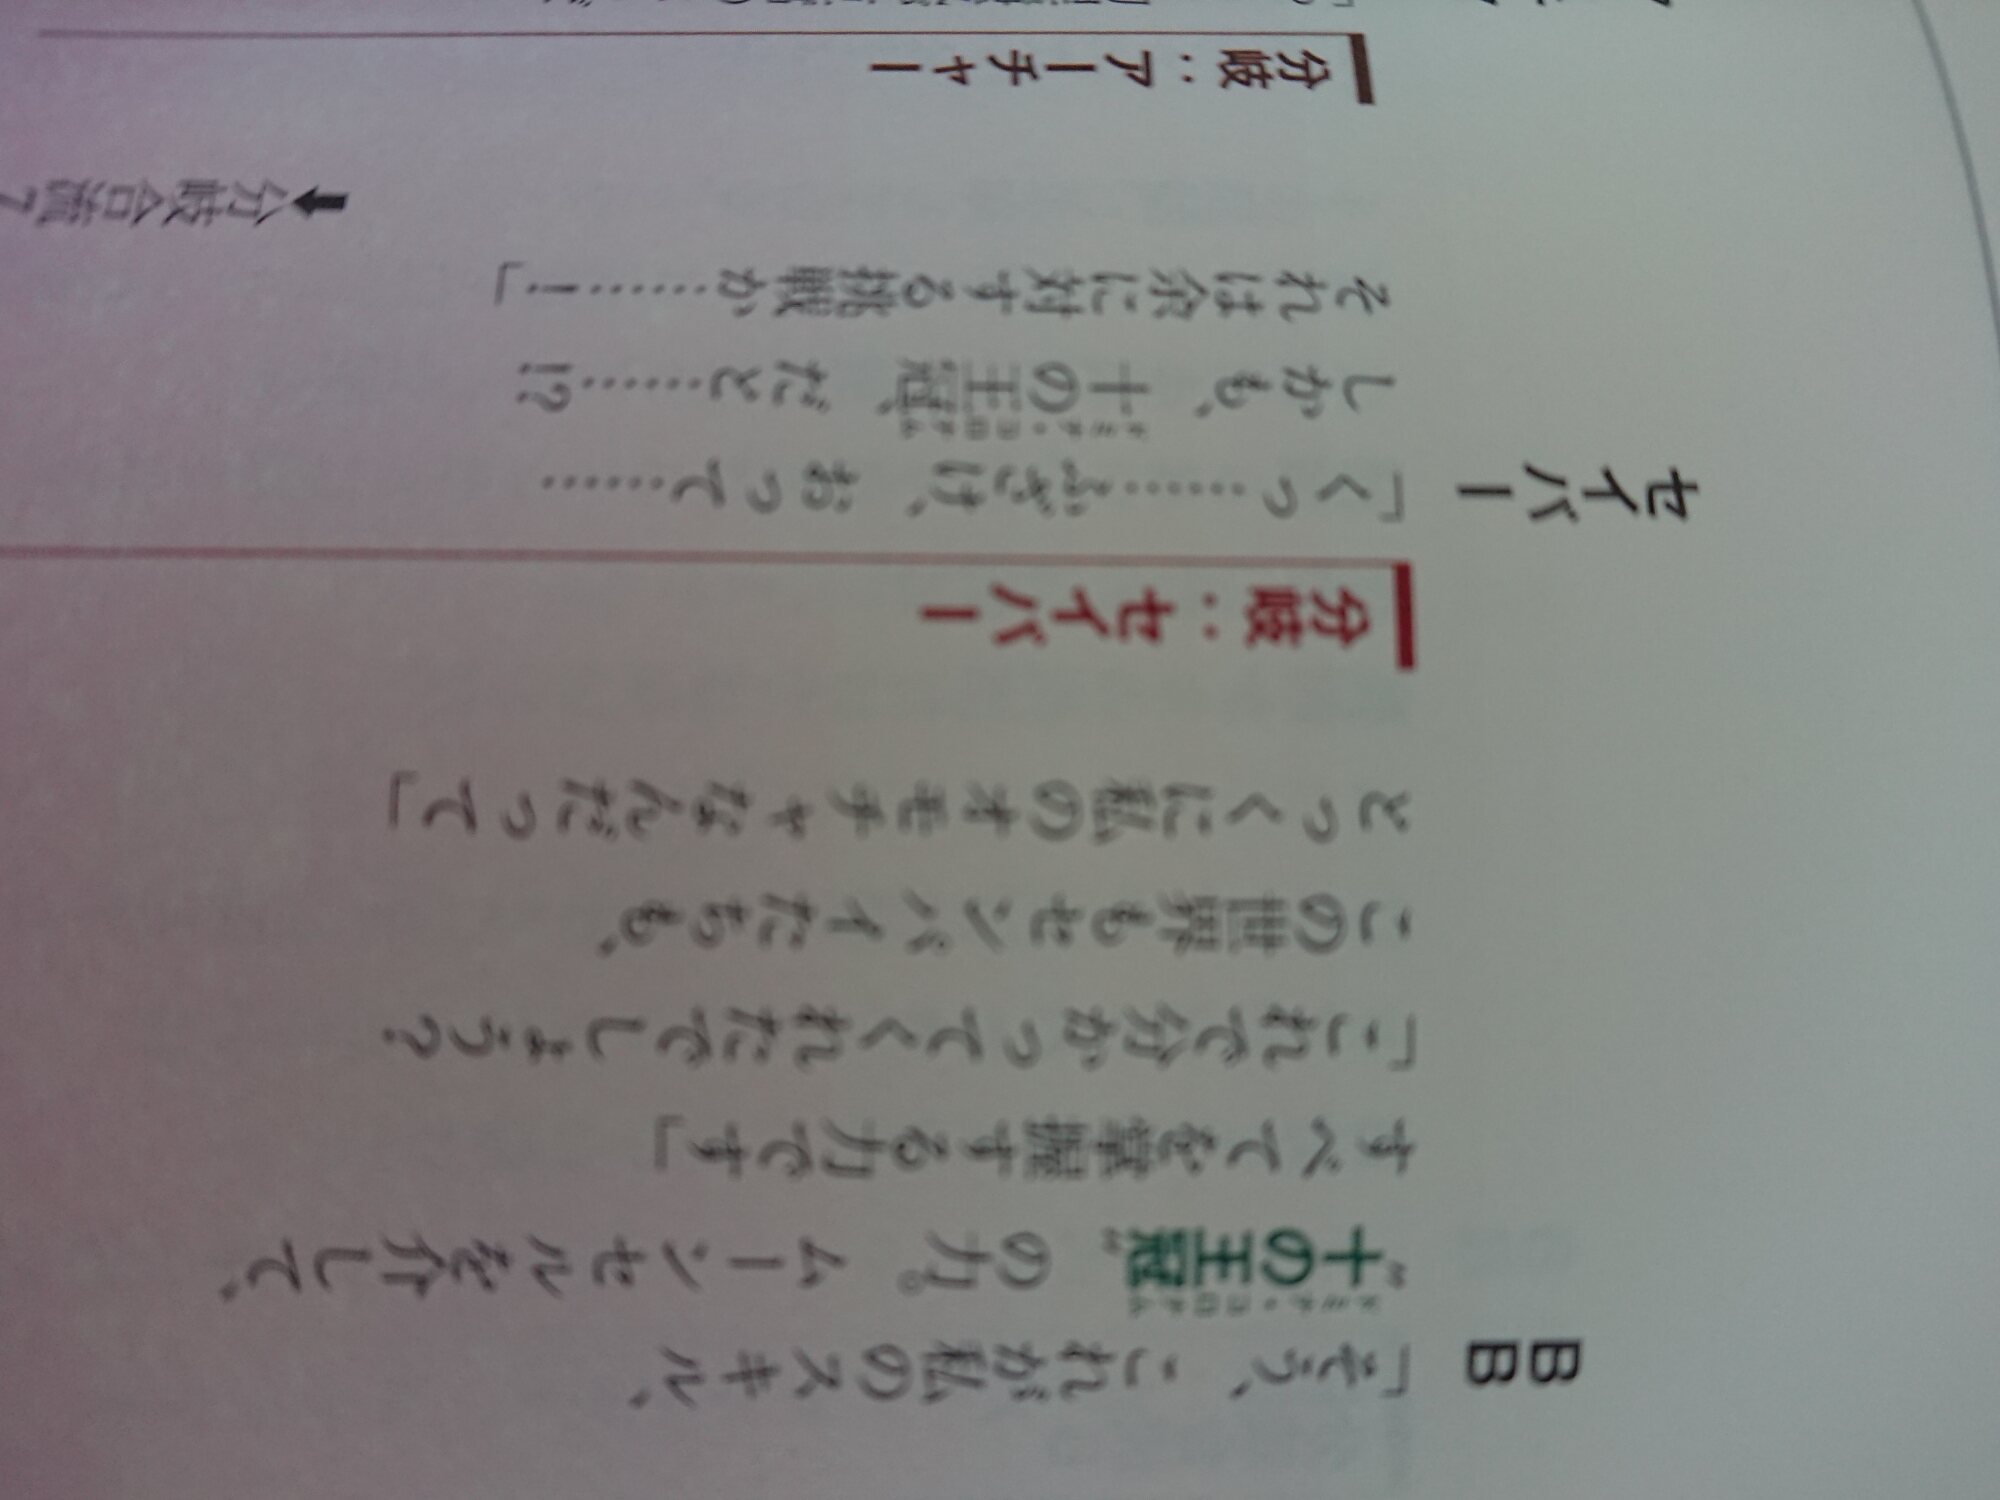 BB
「そう、これが私のスキル、
“十の王冠”の力。ムーンセルを介して、
ドミナ・コロナム
すべてを掌握する力です」
「これで分かってくれたでしょう？
この世界もセンパイたちも、
とっくに私のオモチャなんだって」
分岐：セイバー
セイバー
「くっ……ふざけ、おって……
しかも、十の王冠、だと……!?
ドミナ・コロナム
それは余に対する挑戦か……！」
➡分岐合流7
分岐：アーチャー